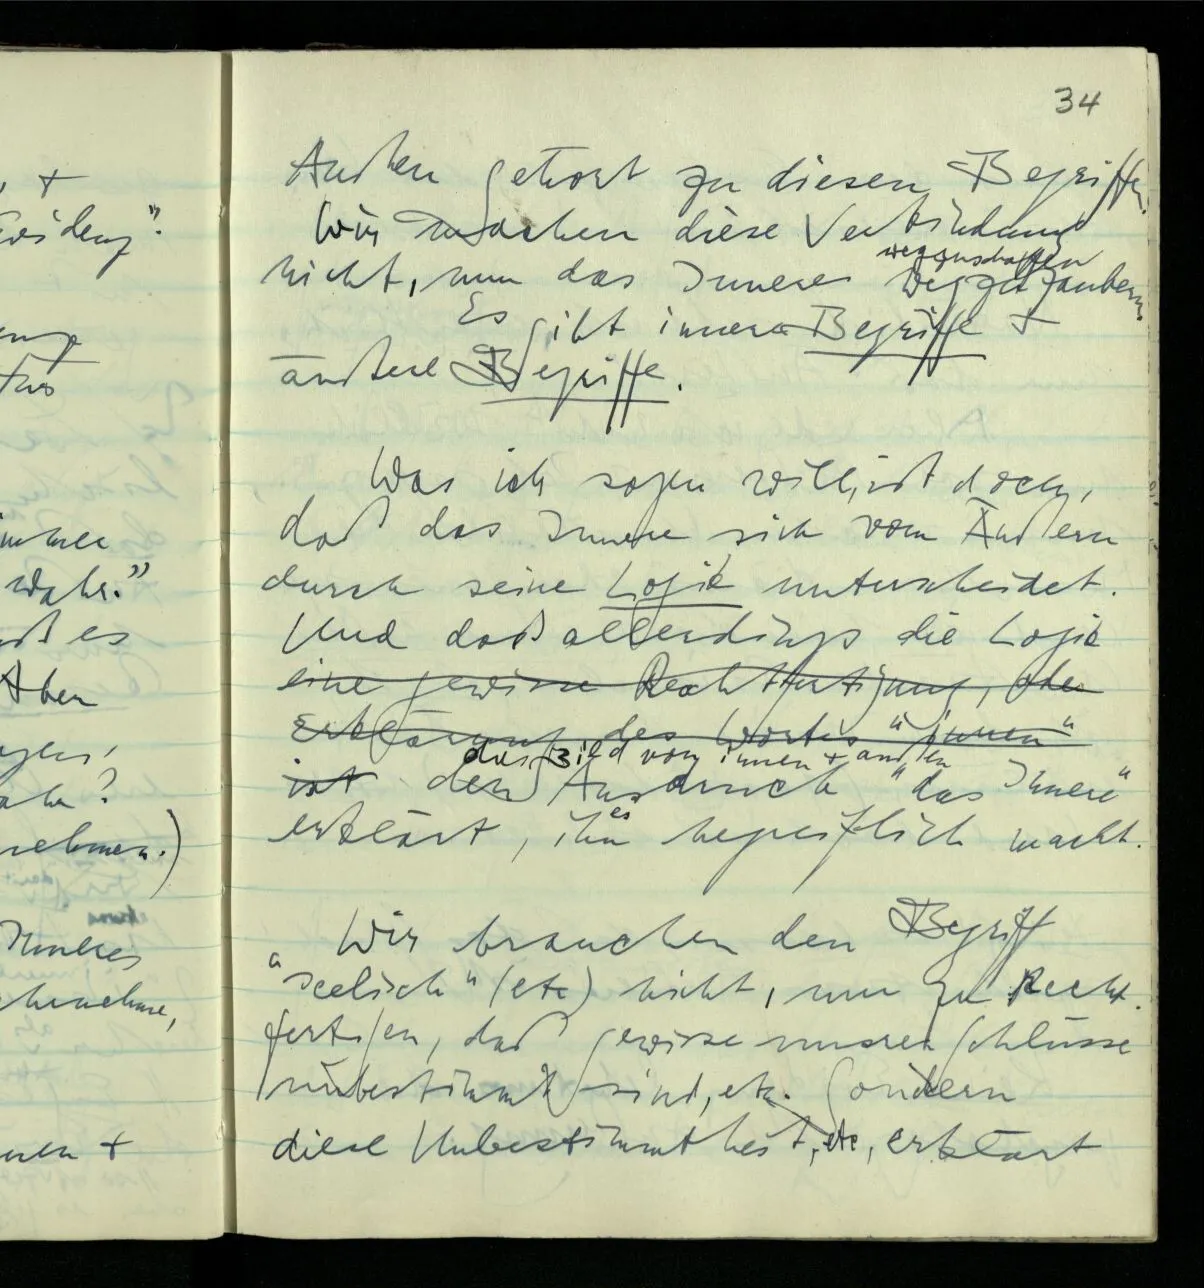 34
Außen gehört zu diesen Begriffen.
Wir machen diese Verbindung
wegzuschaffen
nicht, um das Innere wegzuzaubern.
Es gibt innere Begriffe +
äußere Begriffe.
Was ich sagen will, ist doch,
daß das Innere sich vom Äußern
durch seine Logik unterscheidet.
Und daß allerdings die Logik
eine gewisse Rechtfertigung, oder
Erklärung des Wortes "innen"
das Bild vom innen + außen
ist den Ausdruck "das Innere"
es
erklärt, ihn begreiflich macht.
Wir brauchen den Begriff
"seelisch" (etc) nicht, um zu Recht-
fertigen, daß gewisse unsrer Schlüsse
unbestimmt sind, etc. Sondern
diese Unbestimmtheit, etc, erklärt
, +
"
immer
wahr."
daß es
Aber
?
nehmen.)
Inneres
+